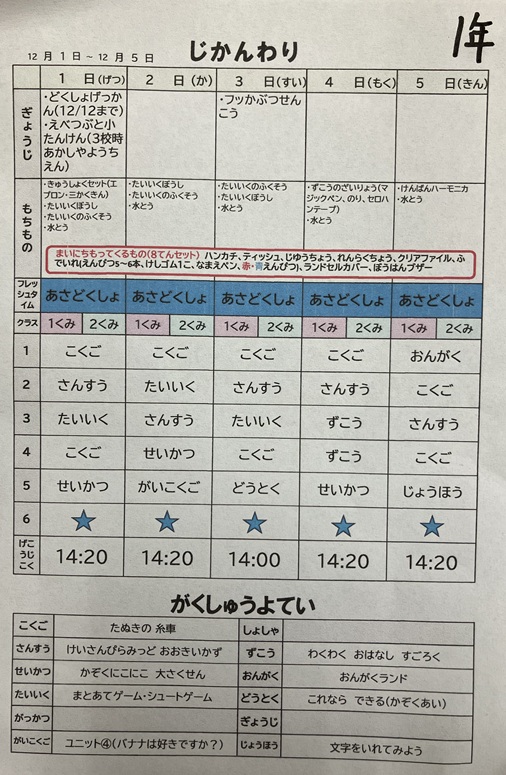 1年
12 月 1 日 ~ 12 月 5 日
じかんわり
1 日(げつ) 2 日 (か) 3 日(すい) 4 日(もく) 5 日(きん)
ぎょうじ
・どくしょげっか
ん(12/12まで)
・えべつぶと小
たんけん(3校時
あかしやようち
えん)
・フッかぶつせん
こう
もちもの
・きゅうしょくセット(エ
プロン・三かくきん)
・たいいくぼうし
・たいいくのふくそう
・水とう
・たいいくぼうし
・たいいくのふくそう
・水とう
・たいいくのふくそう
・たいいくぼうし
・水とう
・ずこうのざいりょう(マ
ジックペン、のり、セロハ
ンテープ)
・水とう
・けんばんハーモニカ
・水とう
まいにちもってくるもの(8てんセット) ハンカチ、ティッシュ、じゆうちょう、れんらくちょう、クリアファイル、ふ
でいれ(えんぴつ5～6本、けしゴム1こ、なまえペン、赤・青えんぴつ)、ランドセルカバー、ぼうはんブザー
フレッ
シュタ
イム
あさどくしょ あさどくしょ あさどくしょ あさどくしょ あさどくしょ
クラス 1くみ 2くみ 1くみ 2くみ 1くみ 2くみ 1くみ 2くみ 1くみ 2くみ
1 こくご こくご こくご こくご おんがく
2 さんすう たいいく さんすう さんすう こくご
3 たいいく さんすう たいいく ずこう さんすう
4 こくご せいかつ こくご ずこう こくご
5 せいかつ がいこくご どうとく せいかつ じょうほう
6 ★ ★ ★ ★ ★
げこ
うじ
こく
14:20 14:20 14:00 14:20 14:20
がくしゅうよてい
こくご たぬきの 糸車 しょしゃ
さんすう けいさんぴらみっど おおきいかず ずこう わくわく おはなし すごろく
せいかつ かぞくにこにこ 大さくせん おんがく おんがくランド
たいいく まとあてゲーム・シュートゲーム どうとく これなら できる(かぞくあい)
がっかつ ぎょうじ
がいこくご ユニット④(バナナは好きですか?) じょうほう 文字をいれてみよう